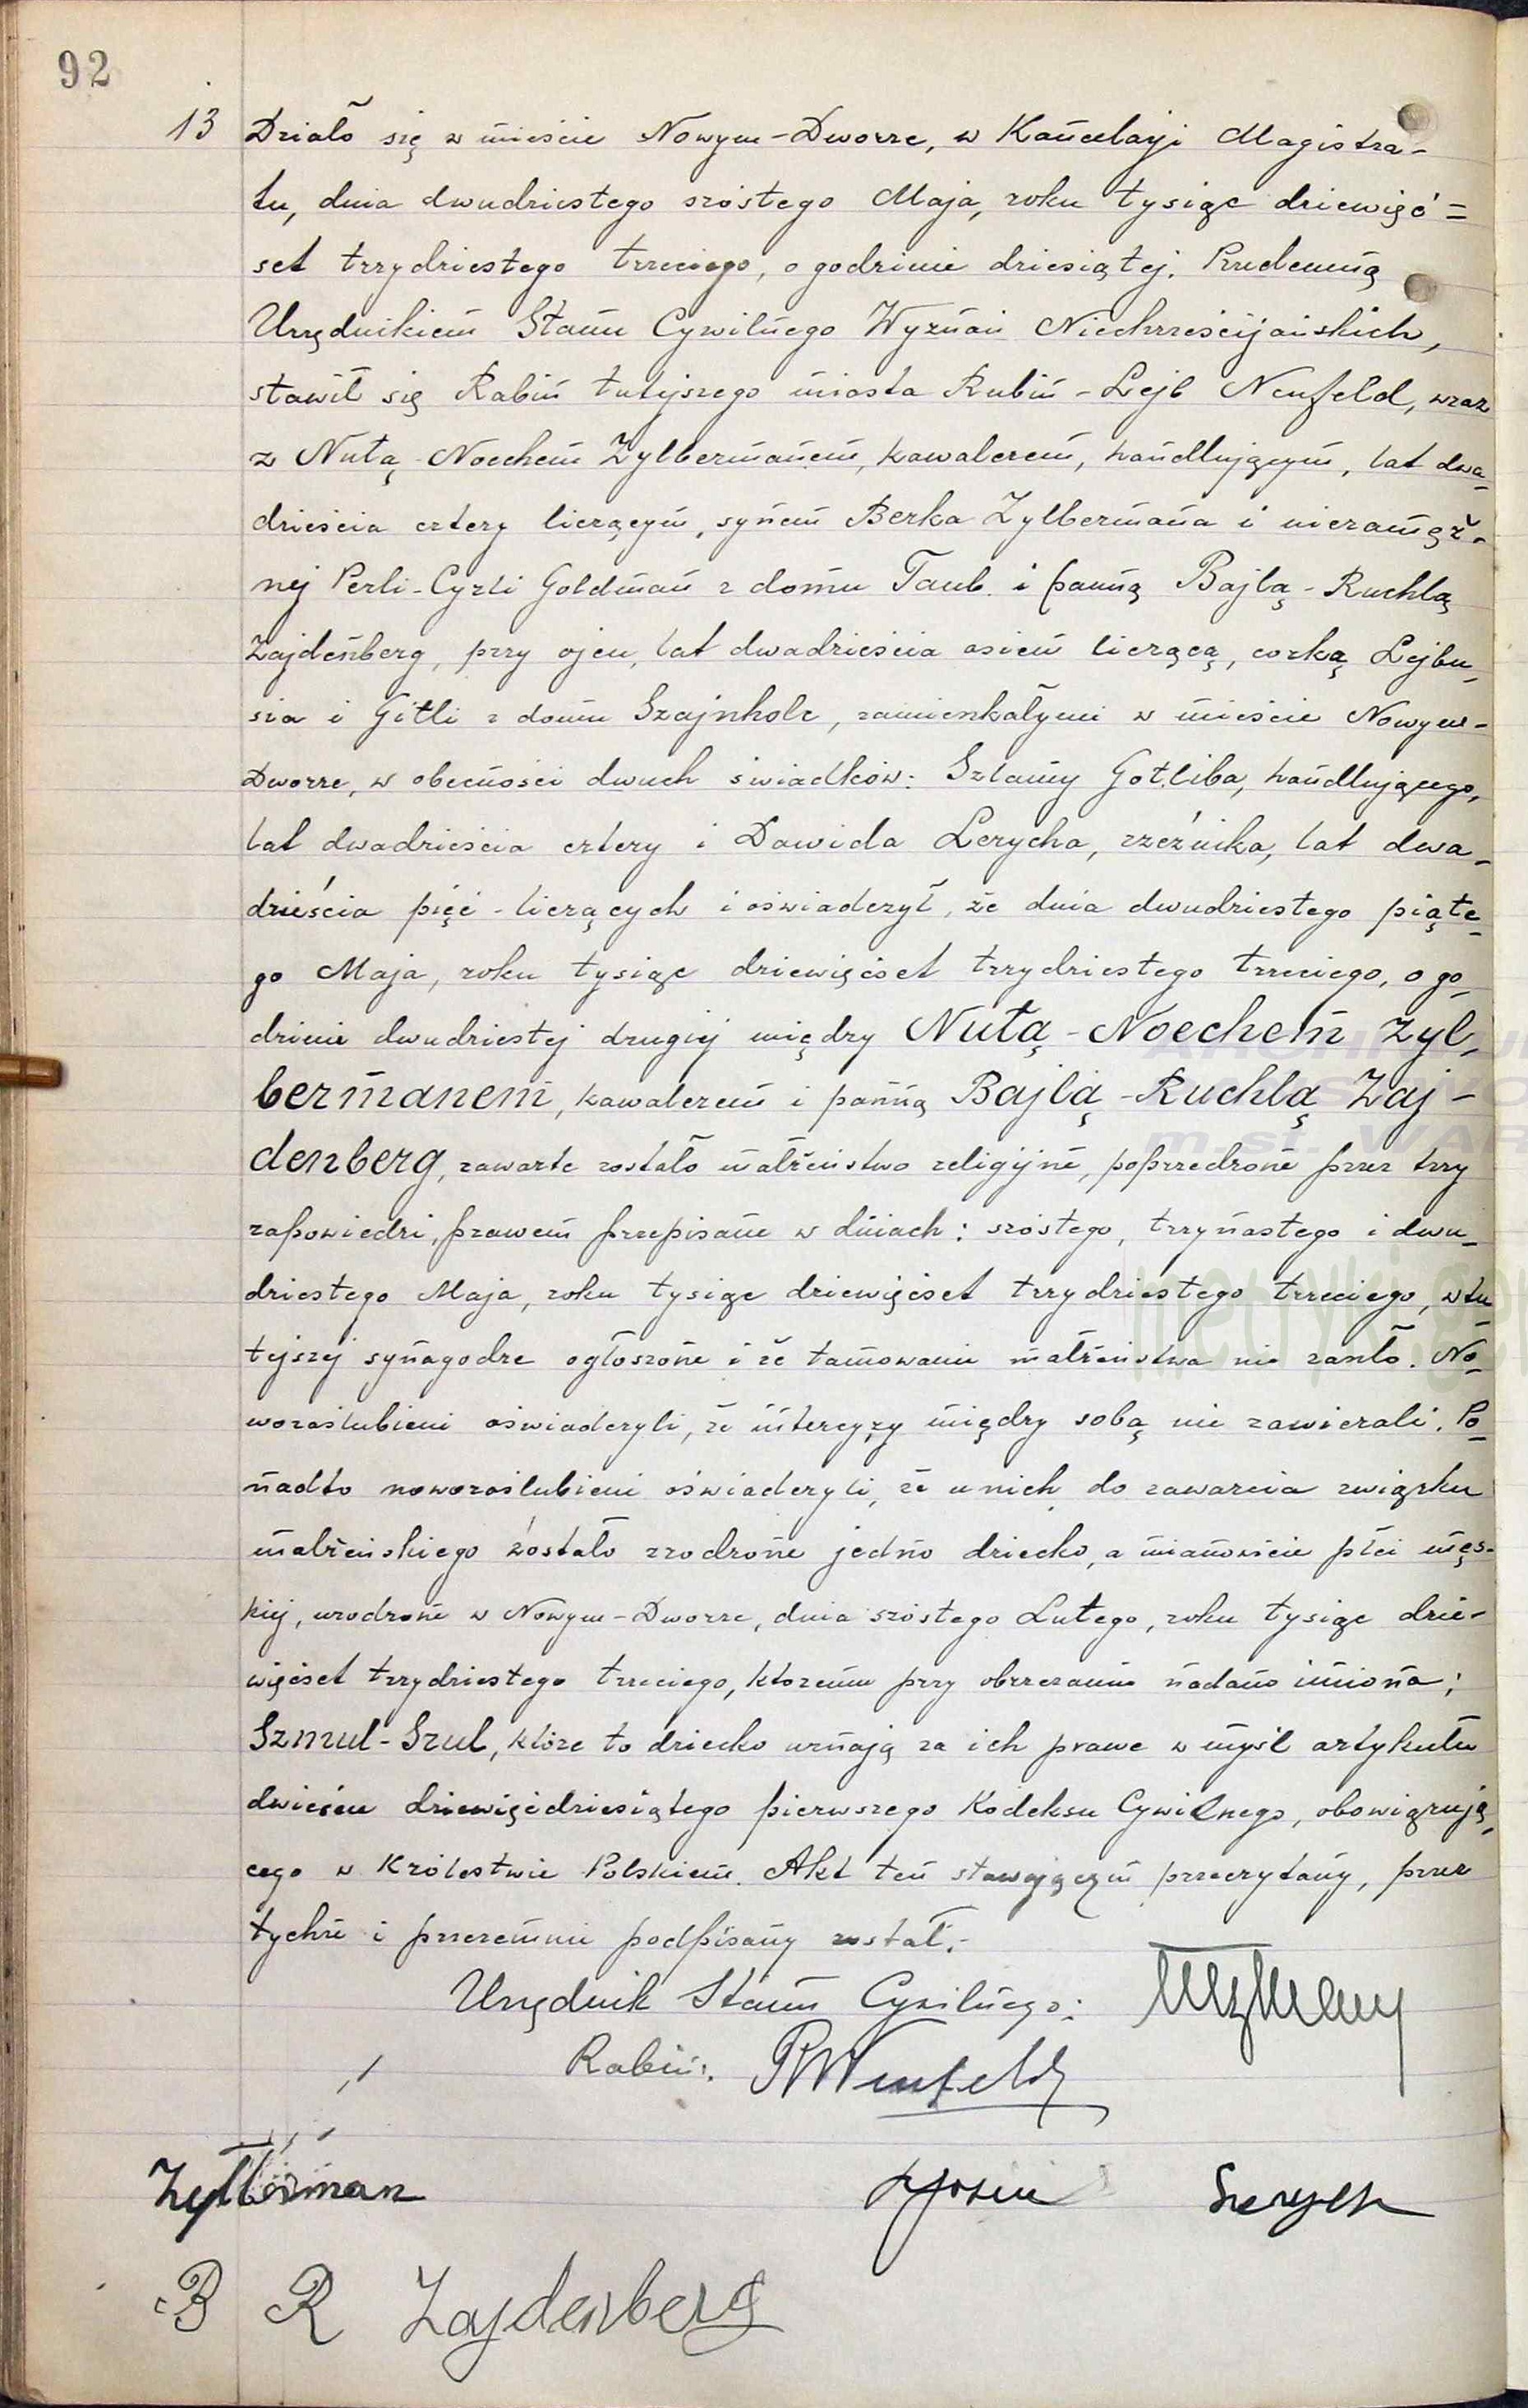 92
13 Działo się w mieście Nowym-Dworze, w Kancelarji Magistra-
tu, dnia dwudziestego szóstego Maja, roku tysiąc dziewięć=
set trzydziestego trzeciego, o godzinie dziesiątej. Przedemną
Urzędnikiem Stanu Cywilnego Wyznań Niechrześcijańskich,
stawił się Rabin tutejszego miasta Rubin-Lejb Neufeld, wraz
z Nutą-Noechem Zylbermanem, kawalerem, handlującym, lat dwa-
dzieścia cztery liczącym, synem Berka Zylbermana i niezamęż-
nej Perli-Cyrli Goldman z domu Taub i panną Bajlą-Ruchlą
Zajdenberg, przy ojcu, lat dwadzieścia osiem liczącą, córką Lejbu-
sia i Gitli z domu Szajnholc, zamieszkałymi w mieście Nowym-
Dworze, w obecności dwuch świadków: Szlamy Gotliba, handlującego,
lat dwadzieścia cztery i Dawida Lerycha, rzeźnika, lat dwa-
dzieścia pięć-liczących i oświadczył, że dnia dwudziestego piąte-
go Maja, roku tysiąc dziewięćset trzydziestego trzeciego, o go-
dzinie dwudziestej drugiej między Nutą-Noechem Zyl-
bermanem, kawalerem i panną Bajlą-Ruchlą Zaj-
denberg, zawarte zostało małżeństwo religijne, poprzedzone przez trzy
zapowiedzi, prawem przepisane w dniach: szóstego, trzynastego i dwu-
dziestego Maja, roku tysiąc dziewięćset trzydziestego trzeciego, w tu
tejszej synagodze ogłoszone i że tamowanie małżeństwa nie zaszło. No-
wozaślubieni oświadczyli, że intercyzy między sobą nie zawierali. Po-
nadto nowozaślubieni oświadczyli, że u nich do zawarcia związku
małżeńskiego zostało zrodzone jedno dziecko, a mianowicie płci męs-
kiej, urodzone w Nowym-Dworze, dnia szóstego Lutego, roku tysiąc dzie-
więćset trzydziestego trzeciego, któremu przy obrzezaniu nadano imiona:
Szmul-Szul, które to dziecko uznają za ich prawe w myśl artykułu
dwieście dziewięćdziesiątego pierwszego Kodeksu Cywilnego, obowiązują-
cego w Królestwie Polskiem. Akt ten stawającym przeczytany, przez
tychże i przezemnie podpisany został.-
Urzędnik Stanu Cywilnego:
Rabin: Neufeld
Zylberman Lerych
B R Zajdenberg